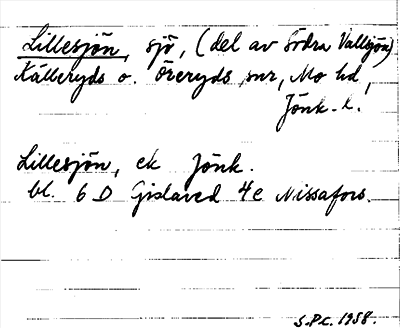 Lillesjön, sjö, (del av Södra Vallsjön)
Källeryds o. Öreryds snr, Mo hd,
Jönk. l.
Lillesjön, ek Jönk.
bl. 6 D Gislaved 4e Nissafors.
S.P.C. 1958.